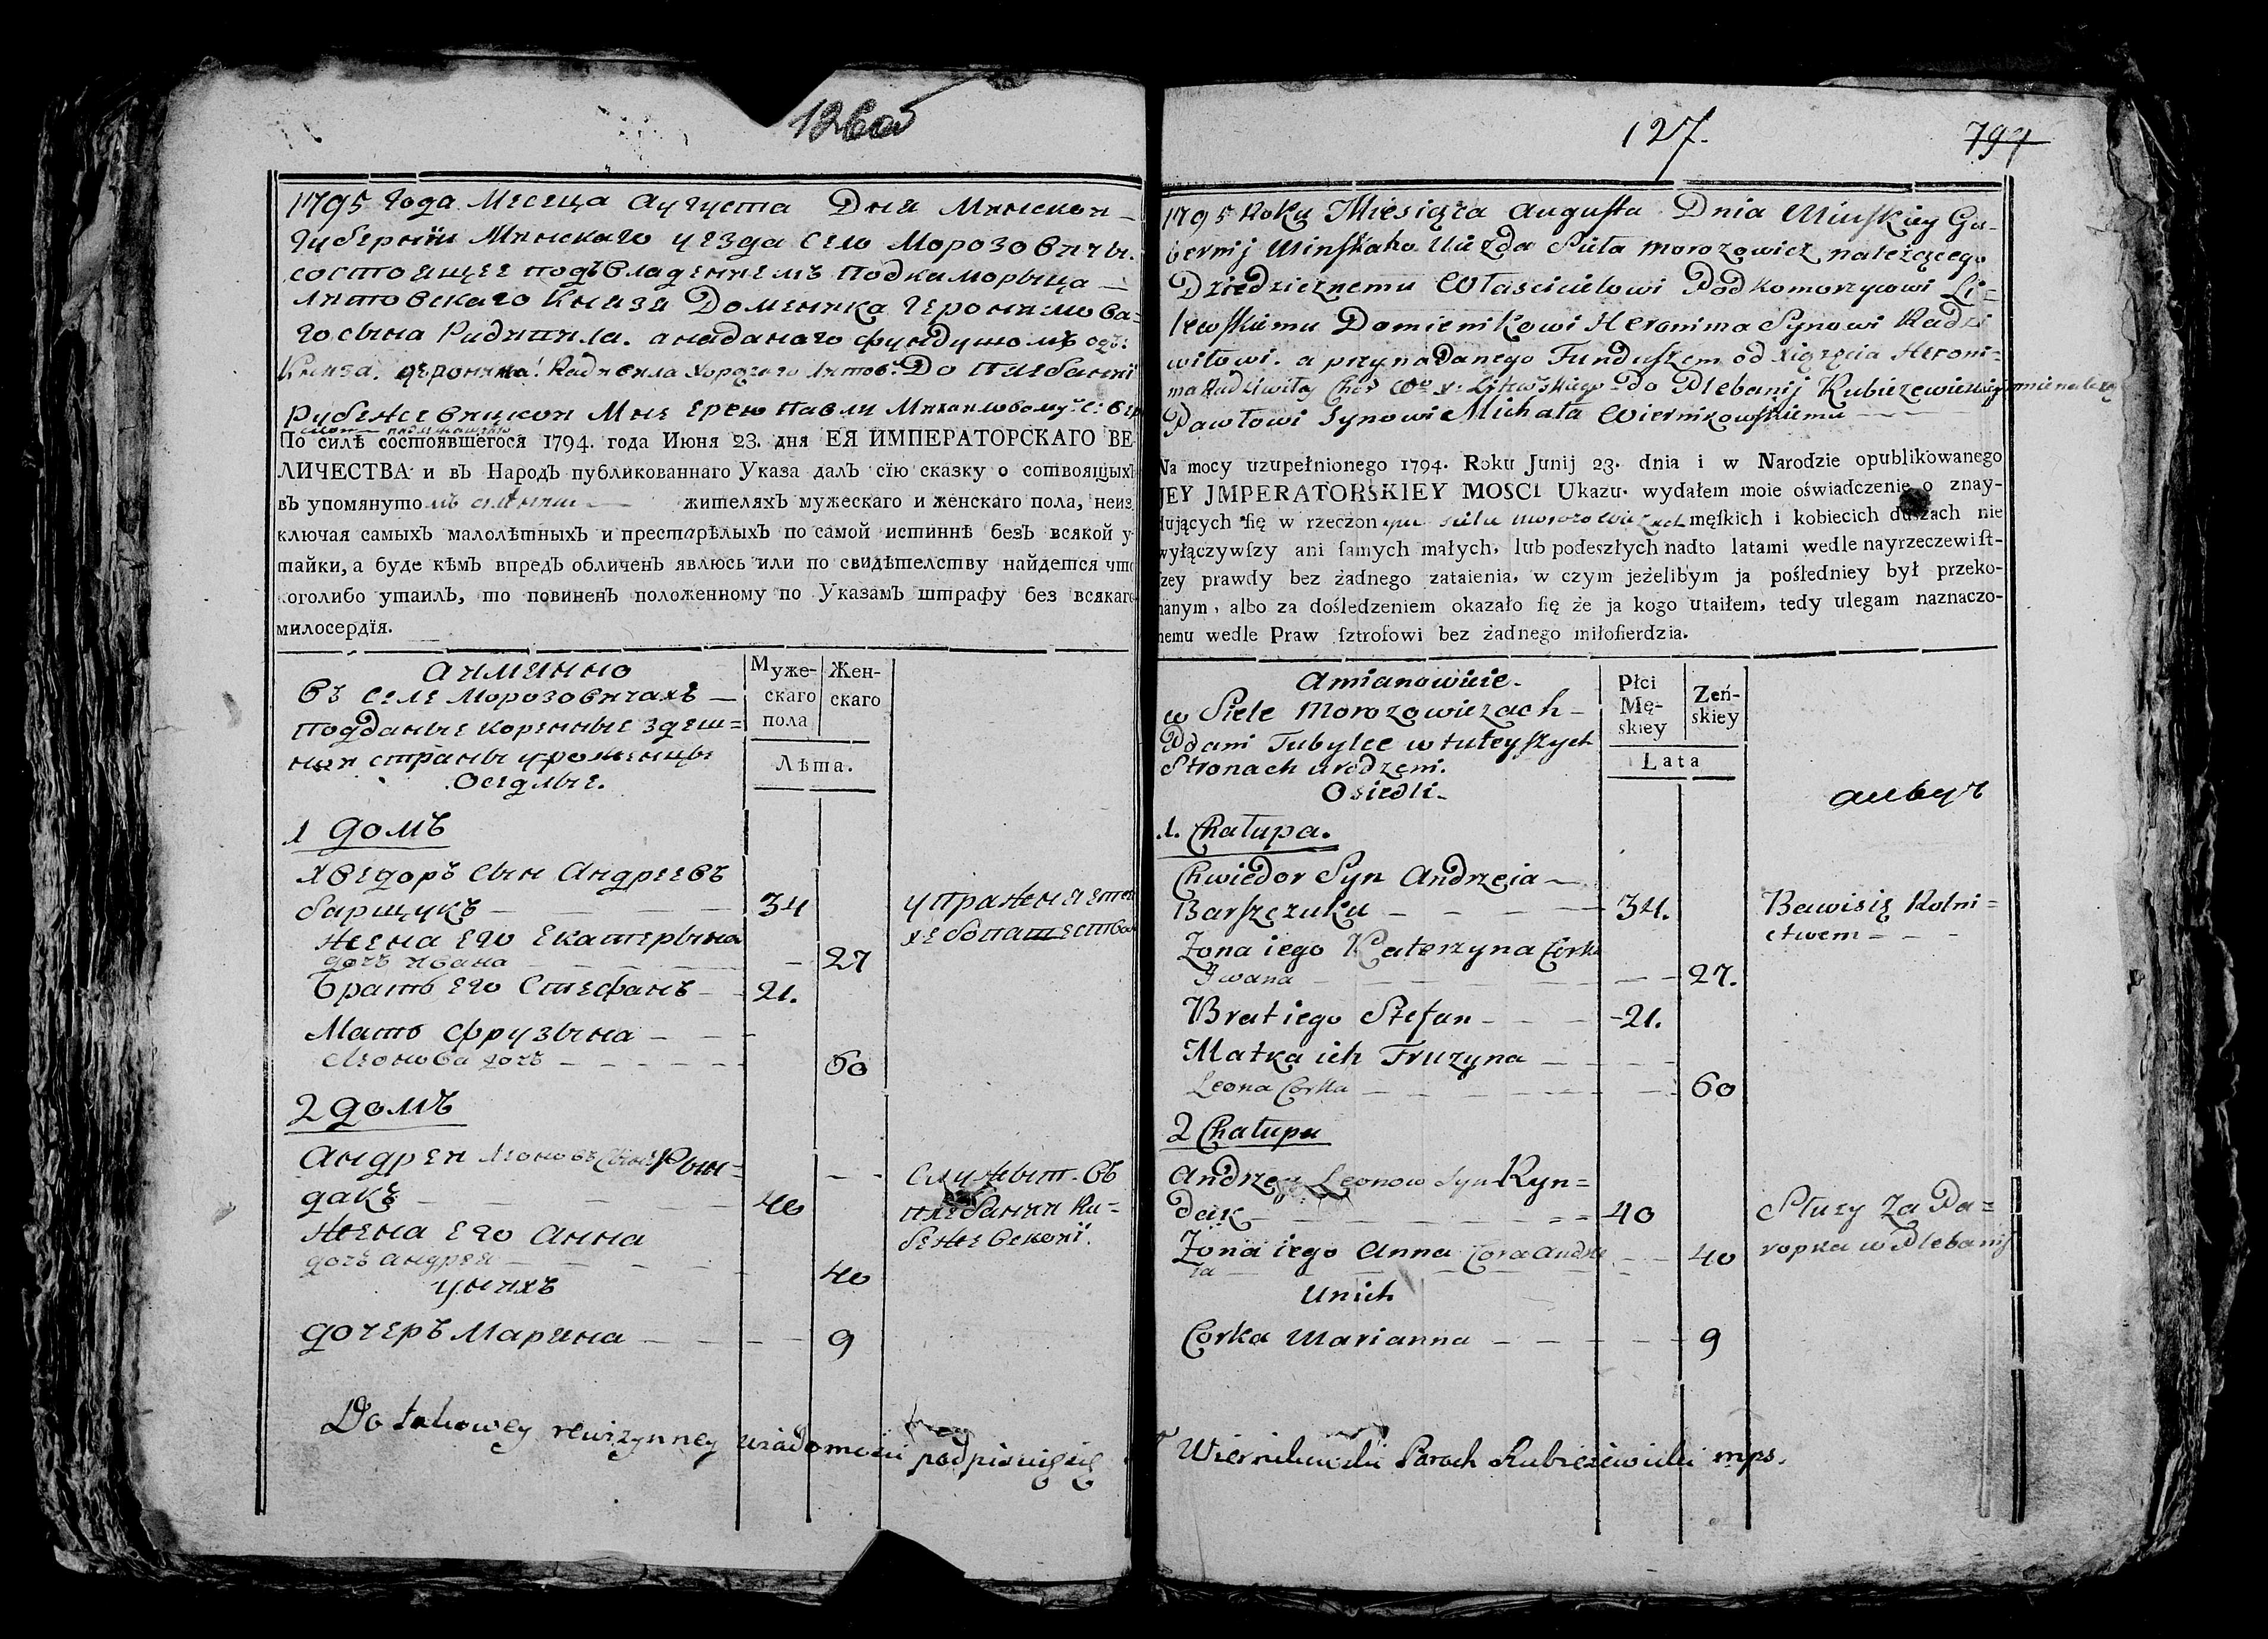 126об
1795 Года Месеца Августа Дня Минской
Губернии Минскаго уезда Село Морозовичы.
состоящее подъ владениемъ Подкаморыца
Литовскаго Князя Доменика Геронимова=
го сына Радивила. а наданаго фундушомъ одъ:
Княза. Радивила Хорожего Литов: До Плебании
Рубежевицкой Мне Ерею Павлу Михаиловому
По силѣ состоявшегося 1794. года Июня 23. дня ЕЯ ИМПЕРАТОРСКАГО ВЕ
ЛИЧЕСТВА и вЪ НародЪ публикованнаго Указа далЪ сїю сказку о сотвоящыхЪ
вЪ упомянутомъ жителяхЪ мужескаго и женскаго пола, неиз
ключая самыхЪ малолѣтныхЪ и престарѣлыхЪ по самой истиннѣ безЪ всякой у
тайки, а буде кѣмЪ впредЪ обличенЪ явлюсь или по свидѣтелству найдется что
коголибо утаилЪ, то повиненЪ положенному по УказамЪ штрафу без всякаго
милосердїя.
Муже-
скаго
пола
Жен-
скаго
Лѣта.
а имянно
въ Селе Морозовичахъ —
подданые коренные здеш=
ней страны уроженцы
Оседлые.
1 домъ
Хведоръ сын Андреевъ
барщукъ — 34 упражняетса
хлебопашеством
жена Его Екатерына
дочъ Ивана — 27
братъ Его Стефанъ — 21.
Мать Фрузына —
Леонова дочъ — 60
2 домъ
Андрей Леоновъ Сынъ Рын=
дакъ — 40
Служыт въ
плебании Ру=
бежевской.
жена Его Анна
дочъ Андрея — 40
у нихъ
дочеръ Марина — 9
Do takowey rewizynney wiadomości podpisuię się
127.
794
1795 Roku Miesiąca Augusta Dnia Minskiey Gu-
bernij Minskaho Uiezda Siła Morozowicz należącego
Dziedzicznemu Własicielowi Podkomorzycowi Li=
tewskiemu Domienikowi Heronima Synowi Radzi
wiłowi. a przynadanego Funduszem od Xiążęcia Heroni=
ma Radziwiłły Chor: Wo X: Litewskiego do Plebanij Rubieżewickiey mnie należy
Pawłowi Synowi Michała Wiernikowskiemu
Na mocy uzupełnionego 1794. Roku Junij 23. dnia i w Narodzie opublikowanego
JEY JMPERATORSKIEY MOSCI Ukazu. wydałem moie oświadczenie o znay-
dujących ſię w rzeczonym Siele Morozowiczach męſkich i kobiecich duszach nie
wyłączywſzy ani ſamych małych, lub podeszłych nadto latami wedle nayrzeczewiſt-
ſzey prawdy bez żadnego zataienia, w czym jeżelibym ja poſledniey był przeko-
nanym, albo za dośledzeniem okazało ſię że ja kogo utaiłem, tedy ulegam naznaczo-
nemu wedle Praw ſztrofowi bez żadnego miłoſierdzia.
Płci
Mę-
skiey
Zeń-
skiey
Lata
Amianowicie.
w Siele Morozowiczach —
Pddani Tubylce w tuteyszych
Stronach urodzeni.
Osiedli.
1. Chałupa.
Chwiedor Syn Andrzeia —
Barszczuku — 34. Bawi się Rolni=
ctwem
Zona iego Katerzyna Corka
Iwana — 27.
Brat iego Stefan — 21.
Matka ich Fruzyna —
Leona Corka — 60
2 Chałupa
Andrzey Leonow Syn Ryn=
dak — 40 Służy Za Pa=
ropka w Plebanij
Zona iego Anna Cora Andrze
ia — 40
Unich
Corka Marianna — 9
Wiernikowski Paroch Rubieżewicki mps.